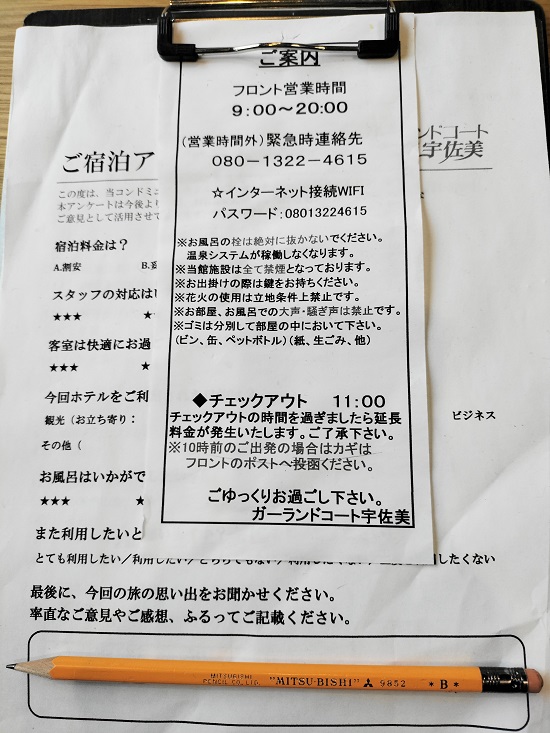 ご案内
フロント営業時間
9:00～20:00
(営業時間外)緊急時連絡先
080－1322－4615
☆インターネット接続WIFI
パスワード:08013224615
※お風呂の栓は絶対に抜かないでください。
温泉システムが稼働しなくなります。
※当館施設は全て禁煙となっております。
※お出掛けの際は鍵をお持ちください。
※花火の使用は立地条件上禁止です。
※お部屋、お風呂での大声・騒ぎ声は禁止です。
※ゴミは分別して部屋の中において下さい。
(ビン、缶、ペットボトル)(紙、生ごみ、他)
◆チェックアウト 11:00
チェックアウトの時間を過ぎましたら延長
料金が発生いたします。ご了承下さい。
※10時前のご出発の場合はカギは
フロントのポストへ投函ください。
ごゆっくりお過ごし下さい。
ガーランドコート宇佐美
ンドコート
宇佐美
ご宿泊ア
この度は、当コンドミニ
本アンケートは今後より
ご意見として活用させて
宿泊料金は?
A.割安 B.
スタッフの対応は
★★★ ★
客室は快適にお過
★★★ ★
今回ホテルをご利
観光（お立ち寄り： ビジネス
その他（
お風呂はいかがで
★★★ ★
また利用したいと
とても利用したい／利用したい／どちらでもない／利用したくない／ 用したくない
最後に、今回の旅の思い出をお聞かせください。
率直なご意見やご感想、ふるってご記載ください。
MITSUBISHI
PENCIL CO. LTD. "MITSU-BISHI" 9852 * B *